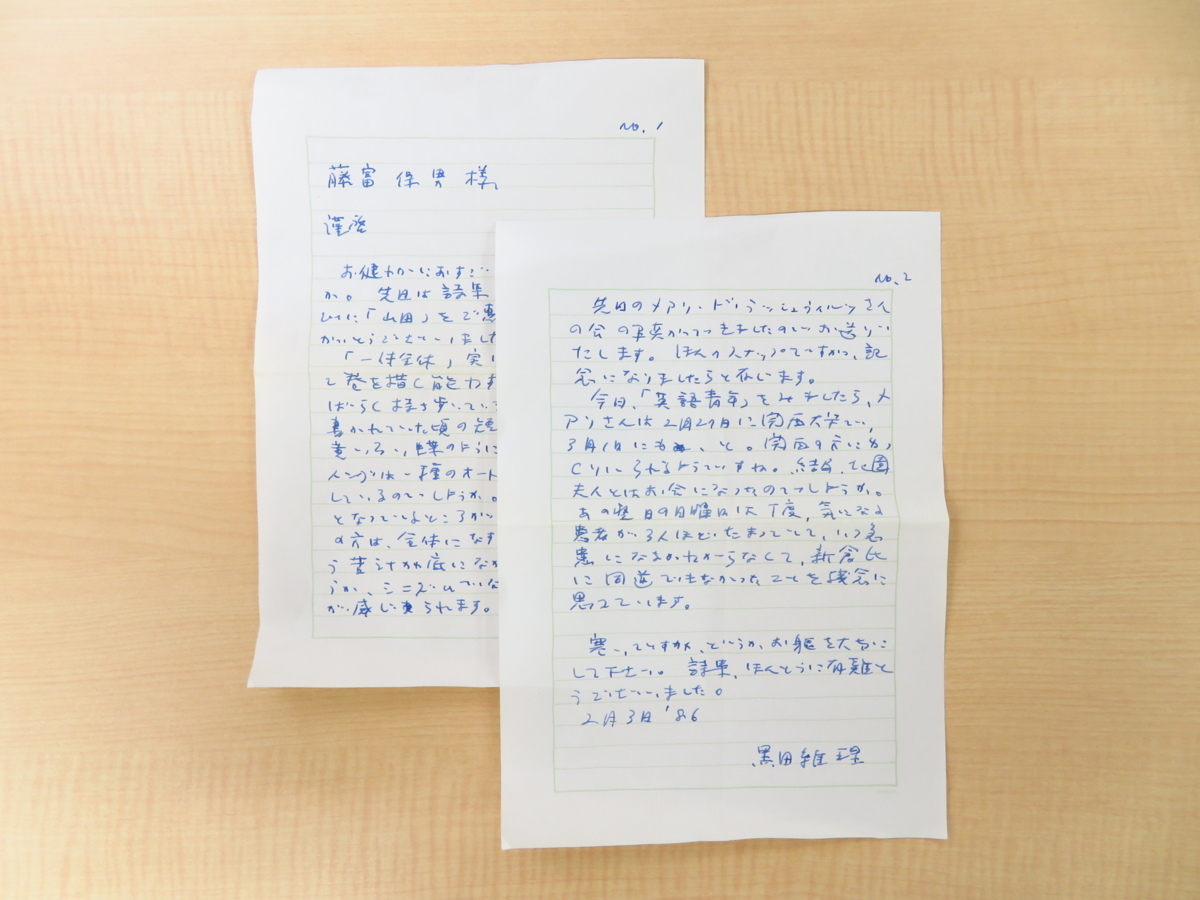 no. 1
藤富保男様
謹啓
お健やかにおすご
か。先日は詩集
ひに「山田」をご恵
がとうございました
「一体全体」実に
て巻を描く能力
ばらく持ち歩いてい
書かれていた頃の
黄いろい、蝶のように
イングは一種のオート
しているのでしょうか。
となっているところが
の方は、全体になす
う苦さが底になが
うか、シニズムでいな
が感じられます。
no. 2
先日のメアリー・ド・ラッシュウィルツさん
の会の写真ができましたのでお送りい
たします。ほんのスナップですが、記
念になりましたらと存じます。
今日、「英語青年」をみましたら、メ
アリさんは2月27日に関西大学で、
3月1日にも、と。関西の方にゆっ
くりいられるようですね。結局、北園
夫人とはお会になったのでしょうか。
あの翌日の日曜日は丁度、気になる
患者が3人ほどいたまっていて、いつ急
患になるかわからなくて、新倉氏
に同道できなかったことを残念に
思っています。
寒いですが、どうか、お躯を大切に
して下さい。詩集、ほんとうに有難と
うございました。
2月3日 '86
黒田維理